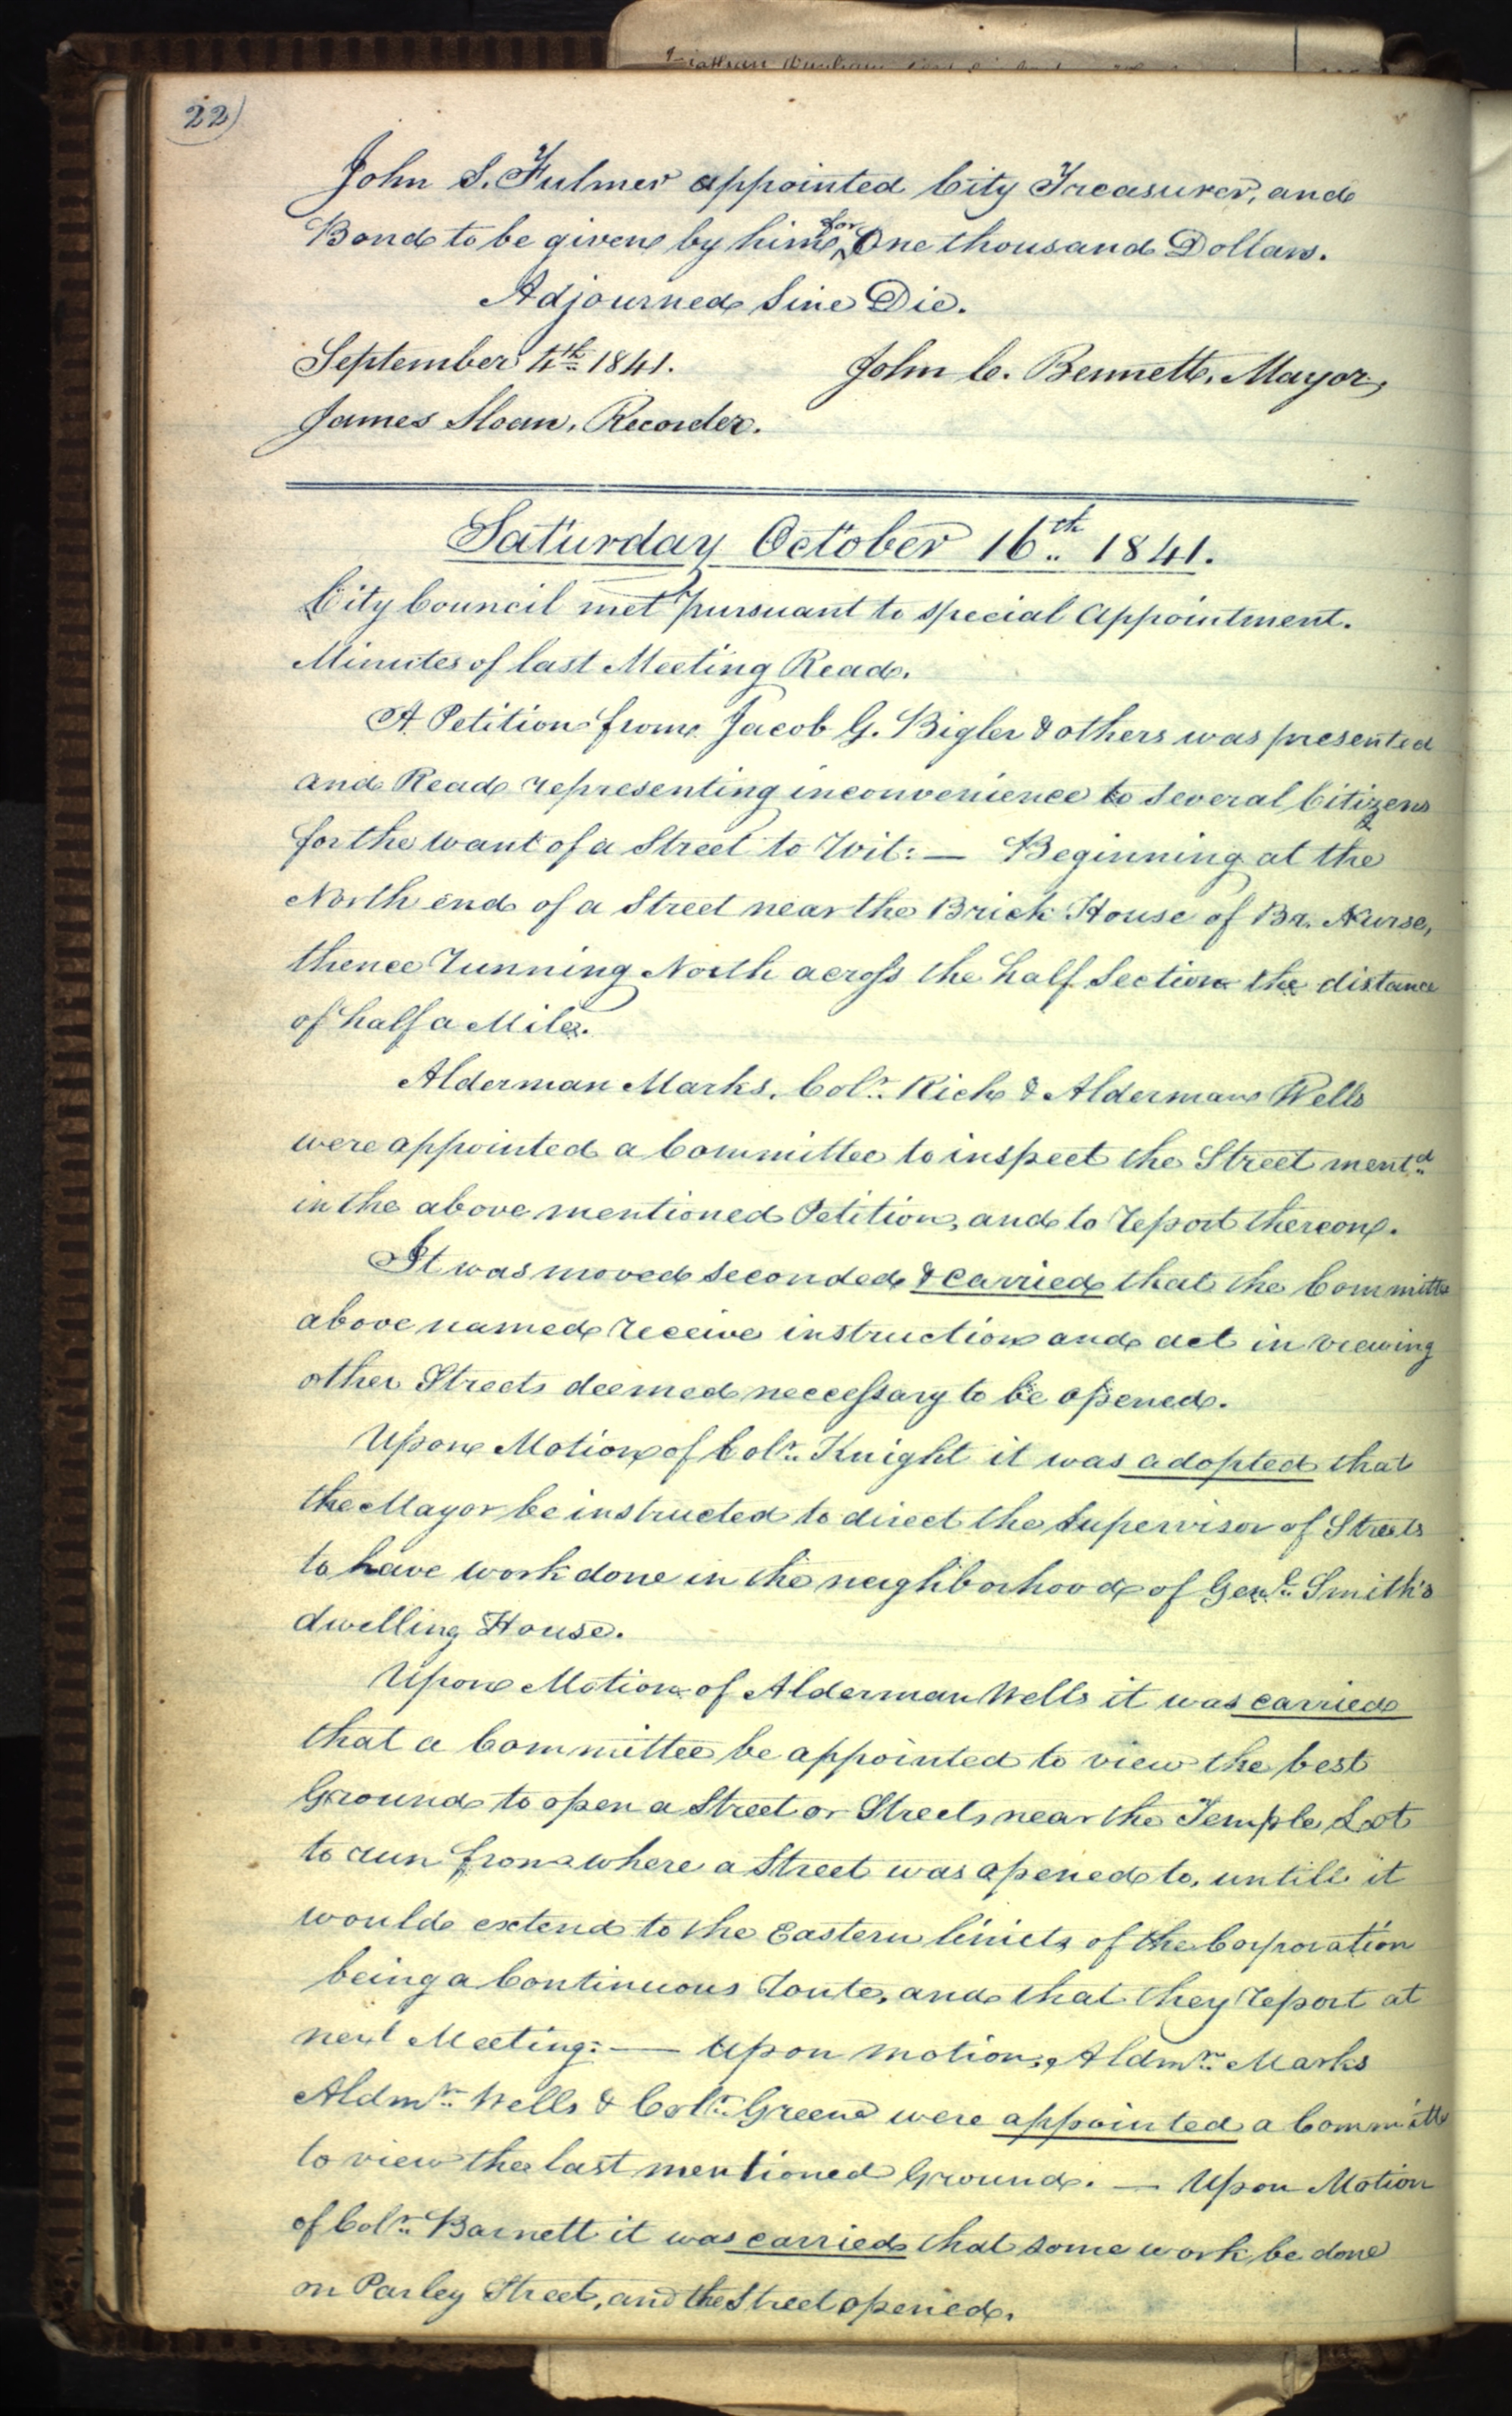 22)
John S. Fulmer appointed City Treasurer, and
Bond to be given by him for One thousand Dollars.
Adjourned Sine Die.
September 4th 1841. John C. Bennett, Mayor,
James Sloan, Recorder.
Saturday October 16th 1841.
City Council met pursuant to special Appointment.
Minutes of last Meeting Read.
A Petition from Jacob G. Bigler & others was presented
and Read representing inconvenience to several Citizens
for the want of a Street to Wit:— Beginning at the
North end of a Street near the Brick House of Br. Nurse,
thence running North across the half Section the distance
of half a Mile.
Alderman Marks, Colr. Rich & Alderman Wells
were appointed a Committee to inspect the Street mentd
in the above mentioned Petition, and to report thereon.
It was moved seconded & carried that the Committee
above named receive instruction and act in viewing
other Streets deemed neccessary to be opened.
Upon Motion of Colr. Knight it was adopted that
the Mayor be instructed to direct the Supervisor of Streets
to have work done in the neighborhood of Genl. Smith's
dwelling House.
Upon Motion of Alderman Wells it was carried
that a Committee be appointed to view the best
Ground to open a Street or Streets near the Temple Lot
to run from where a Street was opened to, untill it
would extend to the Eastern limits of the Corporation
being a Continuous route, and that they report at
next Meeting:— Upon motion, Aldmn. Marks
Aldmn. Wells & Colr. Greene were appointed a Committee
to view the last mentioned Ground. — Upon Motion
of Colr. Barnett it was carried that some work be done
on Parley Street, and the Street opened.